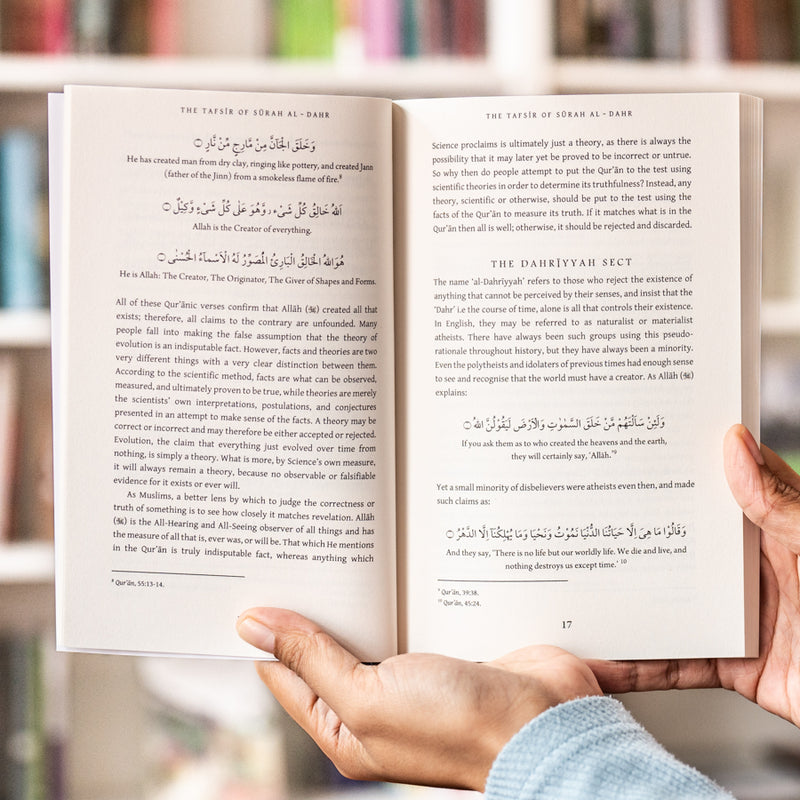 THE TAFSĪR OF SŪRAH AL – DAHR
وَخَلَقَ الْجَآنَّ مِنْ مَّارِجٍ مِّنْ نَّارٍ
He has created man from dry clay, ringing like pottery, and created Jann
(father of the Jinn) from a smokeless flame of fire.⁸
اَللهُ خَالِقُ كُلِّ شَيْءٍ ۖ وَّهُوَ عَلٰى كُلِّ شَيْءٍ وَّكِيْلٌ
Allah is the Creator of everything.
هُوَ اللهُ الْخَالِقُ الْبَارِئُ الْمُصَوِّرُ لَهُ الْاَسْمَآءُ الْحُسْنٰى
He is Allah: The Creator, The Originator, The Giver of Shapes and Forms.
All of these Qur’ānic verses confirm that Allāh (ﷻ) created all that
exists; therefore, all claims to the contrary are unfounded. Many
people fall into making the false assumption that the theory of
evolution is an indisputable fact. However, facts and theories are two
very different things with a very clear distinction between them.
According to the scientific method, facts are what can be observed,
measured, and ultimately proven to be true, while theories are merely
the scientists’ own interpretations, postulations, and conjectures
presented in an attempt to make sense of the facts. A theory may be
correct or incorrect and may therefore be either accepted or rejected.
Evolution, the claim that everything just evolved over time from
nothing, is simply a theory. What is more, by Science’s own measure,
it will always remain a theory, because no observable or falsifiable
evidence for it exists or ever will.
As Muslims, a better lens by which to judge the correctness or
truth of something is to see how closely it matches revelation. Allāh
(ﷻ) is the All-Hearing and All-Seeing observer of all things and has
the measure of all that is, ever was, or will be. That which He mentions
in the Qur’ān is truly indisputable fact, whereas anything which
⁸ Qur’ān, 55:13-14.
THE TAFSĪR OF SŪRAH AL – DAHR
Science proclaims is ultimately just a theory, as there is always the
possibility that it may later yet be proved to be incorrect or untrue.
So why then do people attempt to put the Qur’ān to the test using
scientific theories in order to determine its truthfulness? Instead, any
theory, scientific or otherwise, should be put to the test using the
facts of the Qur’ān to measure its truth. If it matches what is in the
Qur’ān then all is well; otherwise, it should be rejected and discarded.
THE DAHRĪYYAH SECT
The name ‘al-Dahrīyyah’ refers to those who reject the existence of
anything that cannot be perceived by their senses, and insist that the
‘Dahr’ i.e the course of time, alone is all that controls their existence.
In English, they may be referred to as naturalist or materialist
atheists. There have always been such groups using this pseudo-
rationale throughout history, but they have always been a minority.
Even the polytheists and idolaters of previous times had enough sense
to see and recognise that the world must have a creator. As Allāh (ﷻ)
explains:
وَلَئِنْ سَاَلْتَهُمْ مَّنْ خَلَقَ السَّمٰوٰتِ وَالْاَرْضَ لَيَقُوْلُنَّ اللهُ
If you ask them as to who created the heavens and the earth,
they will certainly say, ‘Allāh.’⁹
Yet a small minority of disbelievers were atheists even then, and made
such claims as:
وَقَالُوْا مَا هِيَ اِلَّا حَيَاتُنَا الدُّنْيَا نَمُوْتُ وَنَحْيَا وَمَا يُهْلِكُنَآ اِلَّا الدَّهْرُ
And they say, ‘There is no life but our worldly life. We die and live, and
nothing destroys us except time.’ ¹⁰
⁹ Qur’ān, 39:38.
¹⁰ Qur’ān, 45:24.
17